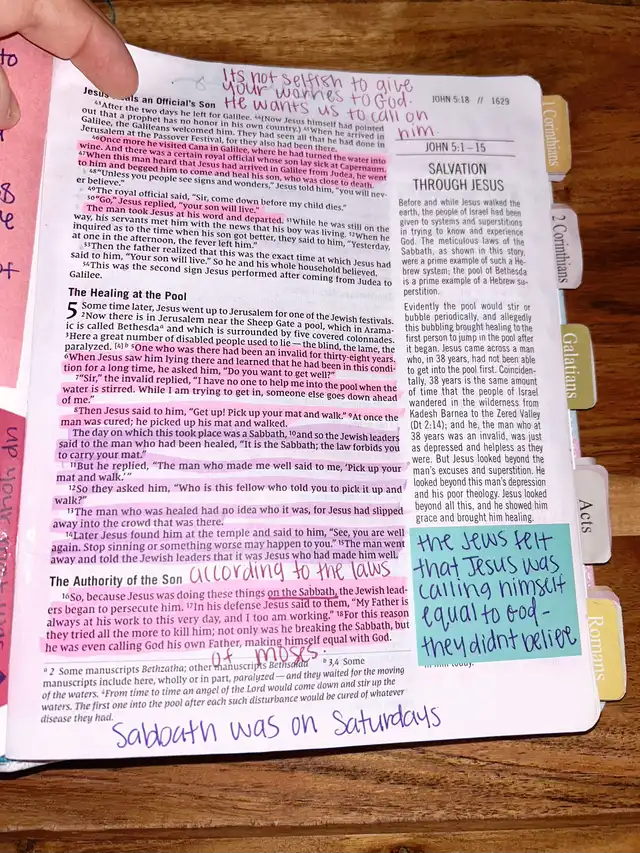 Its not selfish to give
your worries to God.
He wants us to call on
him.
JOHN 5:18 // 1629
Jesus Heals an Official's Son
43After the two days he left for Galilee. 44(Now Jesus himself had pointed
out that a prophet has no honor in his own country.) 45When he arrived in
Galilee, the Galileans welcomed him. They had seen all that he had done in
Jerusalem at the Passover Festival, for they also had been there.
46Once more he visited Cana in Galilee, where he had turned the water into
wine. And there was a certain royal official whose son lay sick at Capernaum.
47When this man heard that Jesus had arrived in Galilee from Judea, he went
to him and begged him to come and heal his son, who was close to death.
48"Unless you people see signs and wonders," Jesus told him, "you will nev-
er believe."
49The royal official said, "Sir, come down before my child dies."
50"Go," Jesus replied, "your son will live."
The man took Jesus at his word and departed. 51While he was still on the
way, his servants met him with the news that his boy was living. 52When he
inquired as to the time when his son got better, they said to him, "Yesterday,
at one in the afternoon, the fever left him."
53Then the father realized that this was the exact time at which Jesus had
said to him, "Your son will live." So he and his whole household believed.
54This was the second sign Jesus performed after coming from Judea to
Galilee.
The Healing at the Pool
5 Some time later, Jesus went up to Jerusalem for one of the Jewish festivals.
2Now there is in Jerusalem near the Sheep Gate a pool, which in Arama-
ic is called Bethesdaa and which is surrounded by five covered colonnades.
3Here a great number of disabled people used to lie — the blind, the lame, the
paralyzed. [4] b 5One who was there had been an invalid for thirty-eight years.
6When Jesus saw him lying there and learned that he had been in this condi-
tion for a long time, he asked him, "Do you want to get well?"
7"Sir," the invalid replied, "I have no one to help me into the pool when the
water is stirred. While I am trying to get in, someone else goes down ahead
of me."
8Then Jesus said to him, "Get up! Pick up your mat and walk." 9At once the
man was cured; he picked up his mat and walked.
The day on which this took place was a Sabbath, 10and so the Jewish leaders
said to the man who had been healed, "It is the Sabbath; the law forbids you
to carry your mat."
11But he replied, "The man who made me well said to me, 'Pick up your
mat and walk.'"
12So they asked him, "Who is this fellow who told you to pick it up and
walk?"
13The man who was healed had no idea who it was, for Jesus had slipped
away into the crowd that was there.
14Later Jesus found him at the temple and said to him, "See, you are well
again. Stop sinning or something worse may happen to you." 15The man went
away and told the Jewish leaders that it was Jesus who had made him well.
The Authority of the Son
according to the laws
16So, because Jesus was doing these things on the Sabbath, the Jewish lead-
ers began to persecute him. 17In his defense Jesus said to them, "My Father is
always at his work to this very day, and I too am working." 18For this reason
they tried all the more to kill him; not only was he breaking the Sabbath, but
he was even calling God his own Father, making himself equal with God.
of moses.
a 2 Some manuscripts Bethzatha; other manuscripts Bethsaida b 3,4 Some
manuscripts include here, wholly or in part, paralyzed — and they waited for the moving
of the waters. 4From time to time an angel of the Lord would come down and stir up the
waters. The first one into the pool after each such disturbance would be cured of whatever
disease they had.
Sabbath was on Saturdays
JOHN 5:1–15
SALVATION
THROUGH JESUS
Before and while Jesus walked the
earth, the people of Israel had been
given to systems and superstitions
in trying to know and experience
God. The meticulous laws of the
Sabbath, as shown in this story,
were a prime example of such a He-
brew system; the pool of Bethesda
is a prime example of a Hebrew su-
perstition.
Evidently the pool would stir or
bubble periodically, and allegedly
this bubbling brought healing to the
first person to jump in the pool after
it began. Jesus came across a man
who, in 38 years, had not been able
to get into the pool first. Coinciden-
tally, 38 years is the same amount
of time that the people of Israel
wandered in the wilderness from
Kadesh Barnea to the Zered Valley
(Dt 2:14); and he, the man who at
38 years was an invalid, was just
as depressed and helpless as they
were. But Jesus looked beyond the
man's excuses and superstition. He
looked beyond this man's depression
and his poor theology. Jesus looked
beyond all this, and he showed him
grace and brought him healing.
the Jews felt
that Jesus was
calling himself
equal to God-
they didnt believe
1 Corinthians
2 Corinthians
Galatians
Acts
Romans